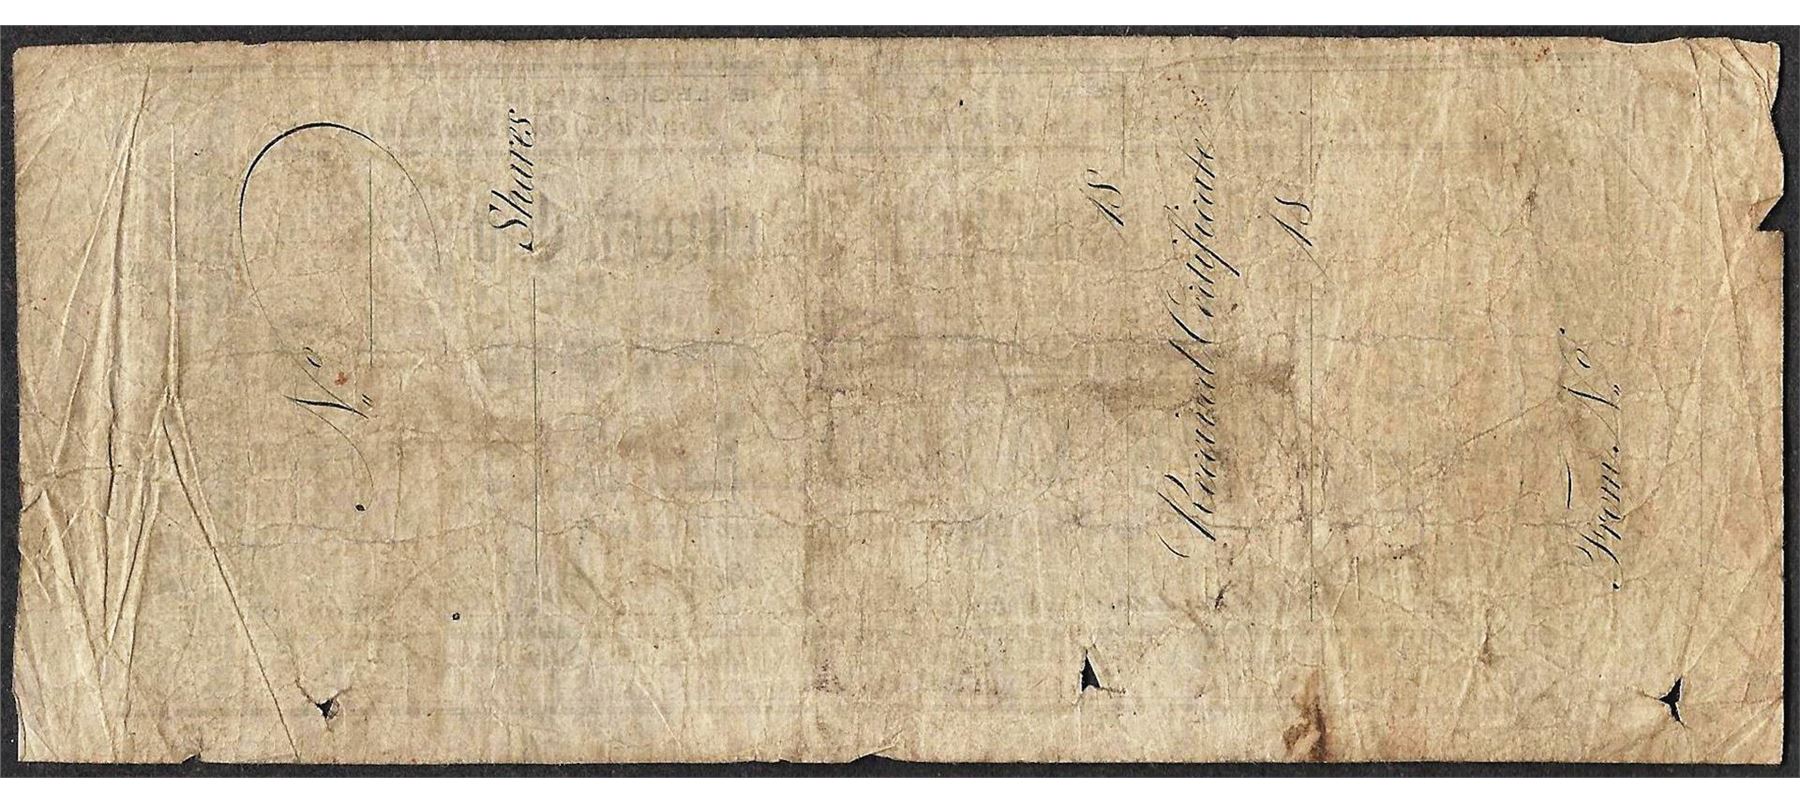 N.º
Shares
18
Received Certificate
18
From N.º